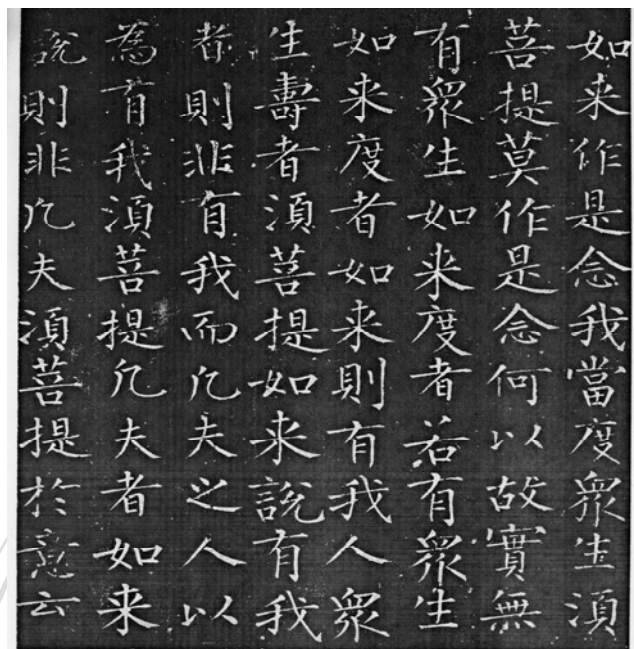 如来作是念我當度衆生湏
菩提莫作是念何以故實無
有衆生如来度者若有衆生
如来度者如来則有我人衆
生壽者湏菩提如来說有我
者則非有我而凡夫之人以
為有我湏菩提凡夫者如来
說則非凡夫湏菩提於意云